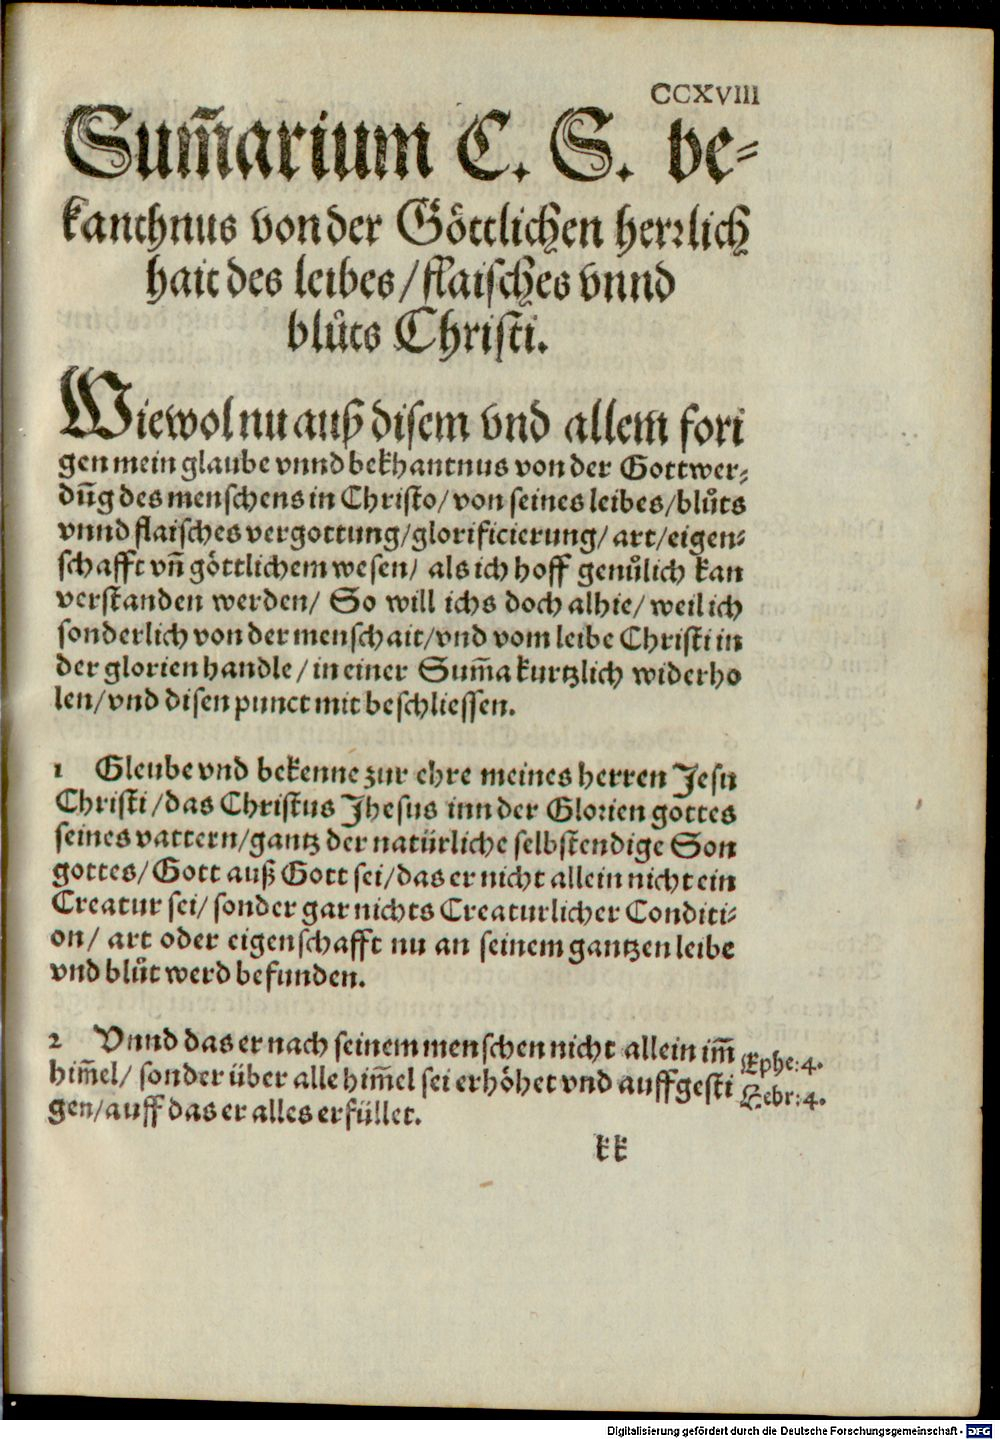 CCXVIII
Sum̄arium C. S. be⸗
kanthnus von der Göttlichen herꝛlich
hait des leibes/ flaisches vnnd
blůts Christi.
Wiewol nu auß disem vnd allem fori
gen mein glaube vnnd bekhantnus von der Gottwer⸗
dūg des menschens in Christo/ von seines leibes/ blůts
vnnd flaisches vergottung/ glorificierung/ art/ eigen⸗
schafft vn̄ göttlichem wesen/ als ich hoff genůlich kan
verstanden werden/ So will ichs doch alhie/ weil ich
sonderlich von der menschait/ vnd vom leibe Christi in
der glorien handle/ in einer Sum̄a kurtzlich widerho
len/ vnd disen punct mit beschliessen.
1 Gleube vnd bekenne zur ehre meines herren Jesu
Christi/ das Christus Jhesus inn der Gloꝛien gottes
seines vattern/ gantz der natürliche selbstendige Son
gottes/ Gott auß Gott sei/ das er nicht allein nicht ein
Creatur sei/ sonder gar nichts Creaturlicher Conditi⸗
on/ art oder eigenschafft nu an seinem gantzen leibe
vnd blůt werd befunden.
2 Vnnd das er nach seinem menschen nicht allein im̄
him̄el/ sonder über alle him̄el sei erhöhet vnd auffgesti
gen/ auff das er alles erfüllet.
Ephe: 4.
Hebr: 4.
kk
Digitalisierung gefördert durch die Deutsche Forschungsgemeinschaft - DFG